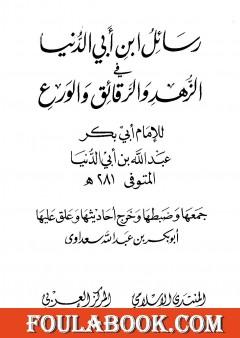 رسائل ابن أبي الدنيا
في
الزهد والرقائق والورع
للإمام أبي بكر
عبد الله بن أبي الدنيا
المتوفى ٢٨١ هـ
جمعها وضبطها وخرج أحاديثها وعلق عليها
أبو بكر بن عبد الله سعداوي
المنتدى الإسلامي المركز العربي
FOULABOOK.COM